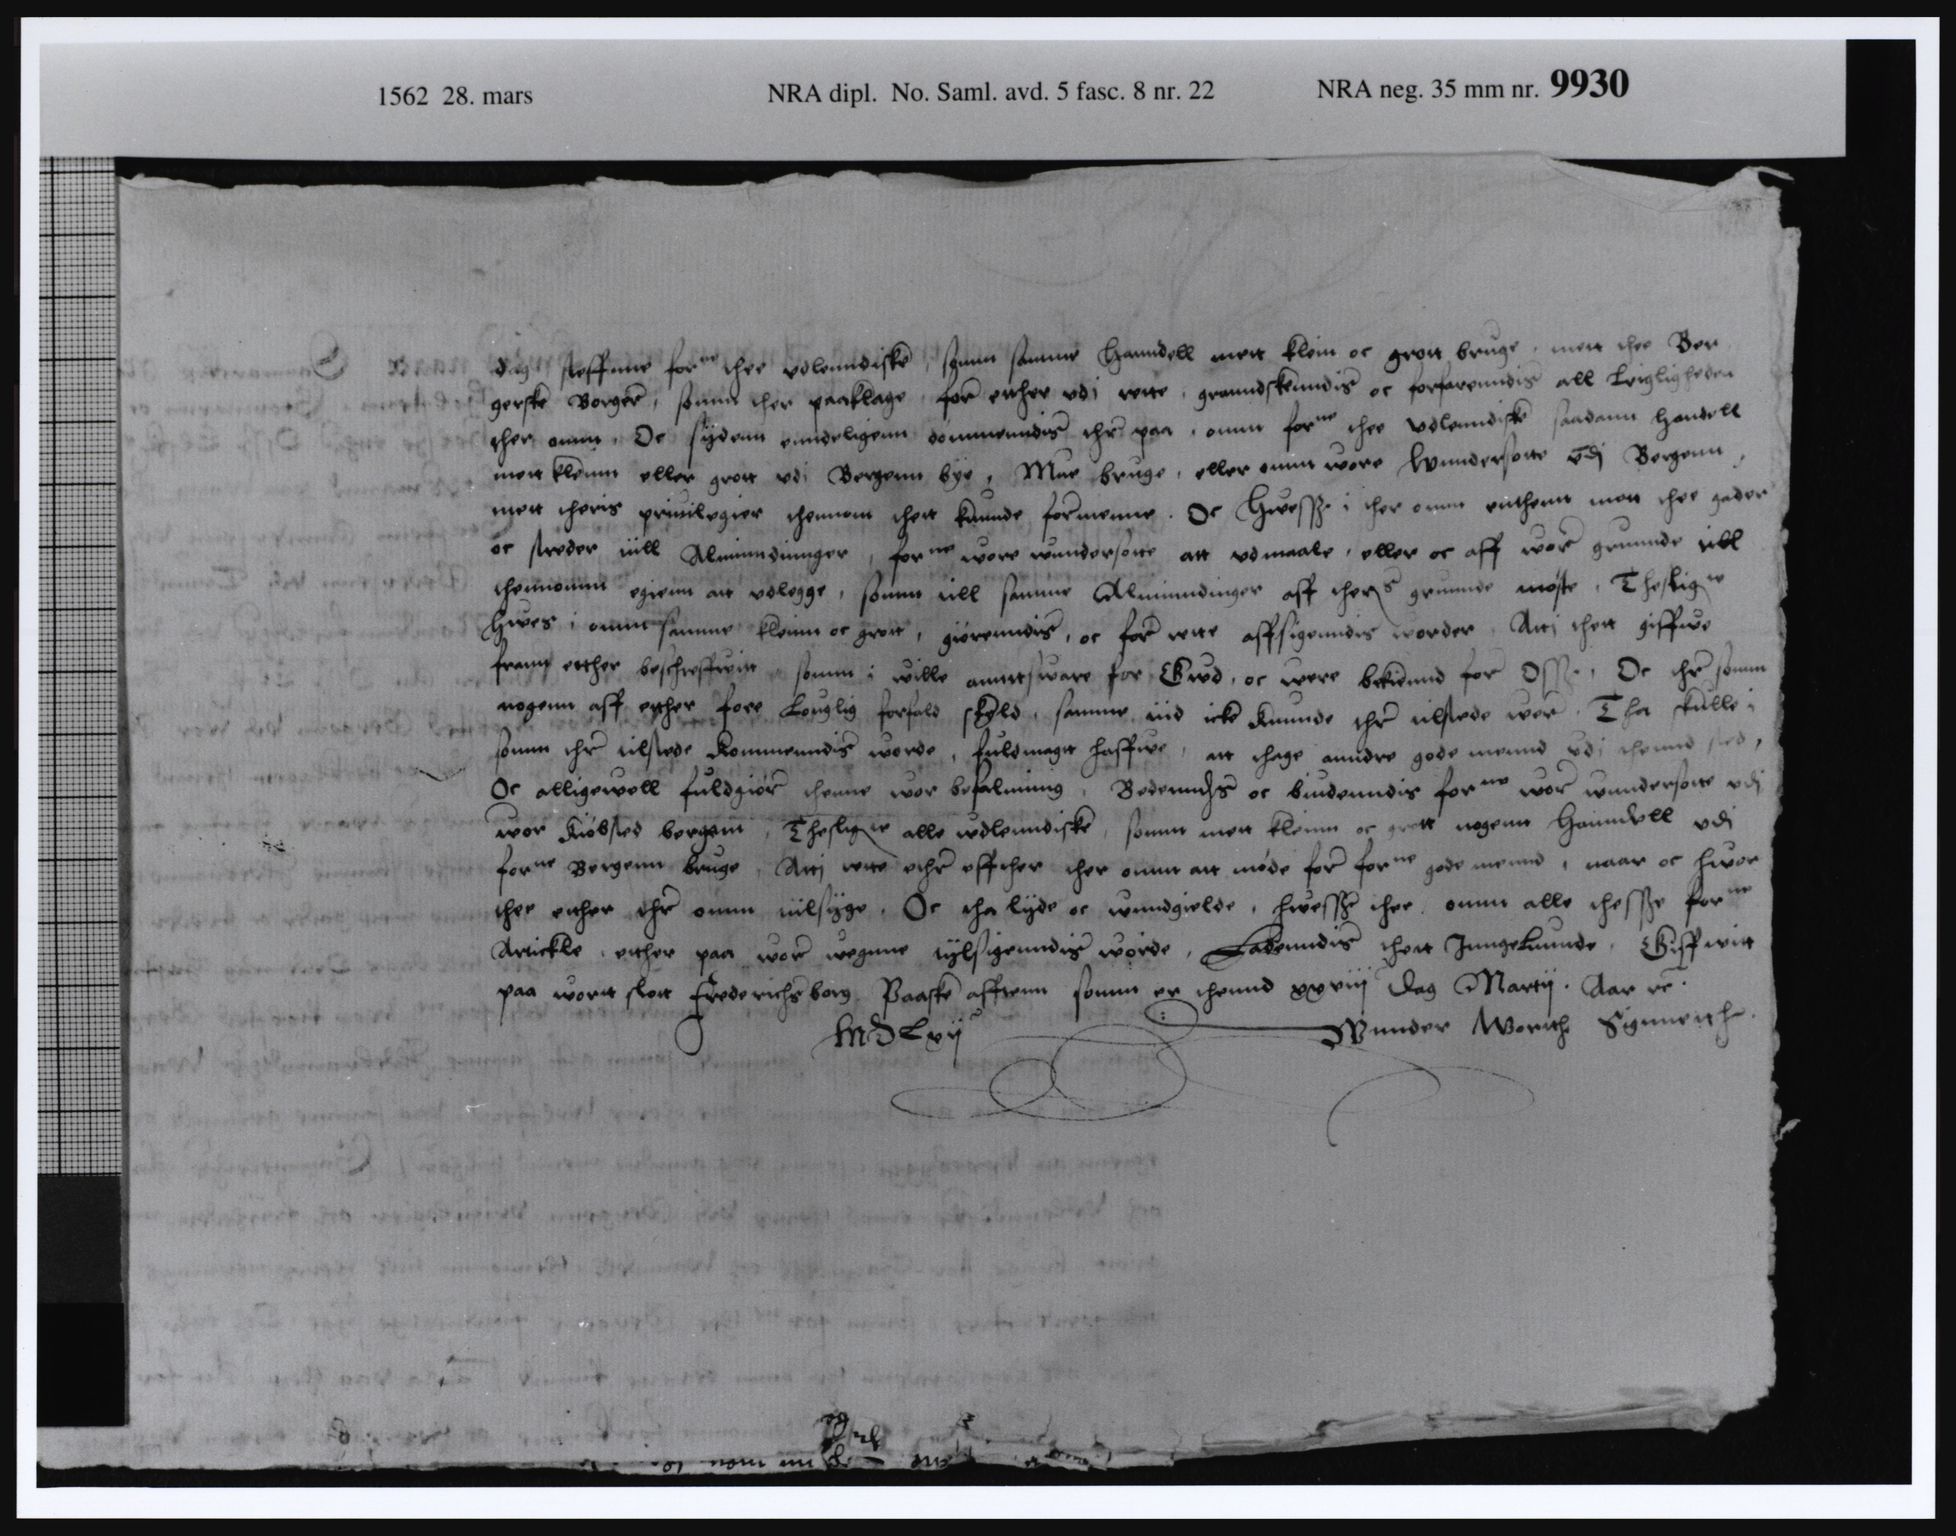 1562 28. mars NRA dipl. No. Saml. avd. 5 fasc. 8 nr. 22 NRA neg. 35 mm nr. 9930
dag steffnne forne thee vdlenndiske, somm samme Hanndell mett klein oc grott bruge, mett thee Ber
gerske Borgere, somm ther paaklage, for etther vdi rette, granndskenndis oc forfarenndis all Leigligheden
ther omm, Oc sydenn enndeligenn dömmenndis ther paa, omm forne thee vdlenndiske saadann Handell
mett kleinn eller grott vdi Bergenn bye, Mue bruge, eller omm wore Wunndersotte vdj Bergenn,
mett theris priuilegier thennom thett kunnde formenne. Oc Huess i ther omm enthenn mett thee gader
oc stæder till Alminndinnger, forne wore wundersotte att vdmaale, eller oc aff wor grunnde till
thennomm egienn att vdlegge, somm till samme Alminndinger aff thers grunnde miste, Theslige
Hues i omm samme kleinn oc grott, giörenndis, oc for rette affsigenndis worder, Atj thett giffwe
fram etther beschreffuitt, somm i wille anntsware for Gud, oc were bekiennd for Oss, Oc ther somm
nogenn aff etther fore Louglig forfald skyld, samme tiid icke Kunnde ther tilstede wer, Tha skulle i
somm ther tilstede kommenndis worde, fuldmagtt haffwe, att thage anndre gode mennd vdi thennd sted,
Oc alligewell fuldgiör thenne wor befalninng, Bedenndis oc biudenndis forne wor wundersotte vdj
wor Kiöbsted bergenn, Theslige alle wdlenndiske, somm mett kleinn oc grott nogenn Hanndell vdi
forne Bergenn bruge, Attj rette ether effther ther omm att möde for forne gode mennd, naar oc hwor
thee etther ther omm tiilsiige, Oc tha lyde oc wnndgielde, huess thee omm alle thesse forne
Artickle, etther paa wor wegnne tiilsigenndis worde, Ladenndis thett Inngelunnde, Giffwitt
paa wortt slott Frederichsborg Paaske afftenn somm er thennd xxviij Dag Martij. Aar rc.
MDLxij Wnnder Worth Signneth.